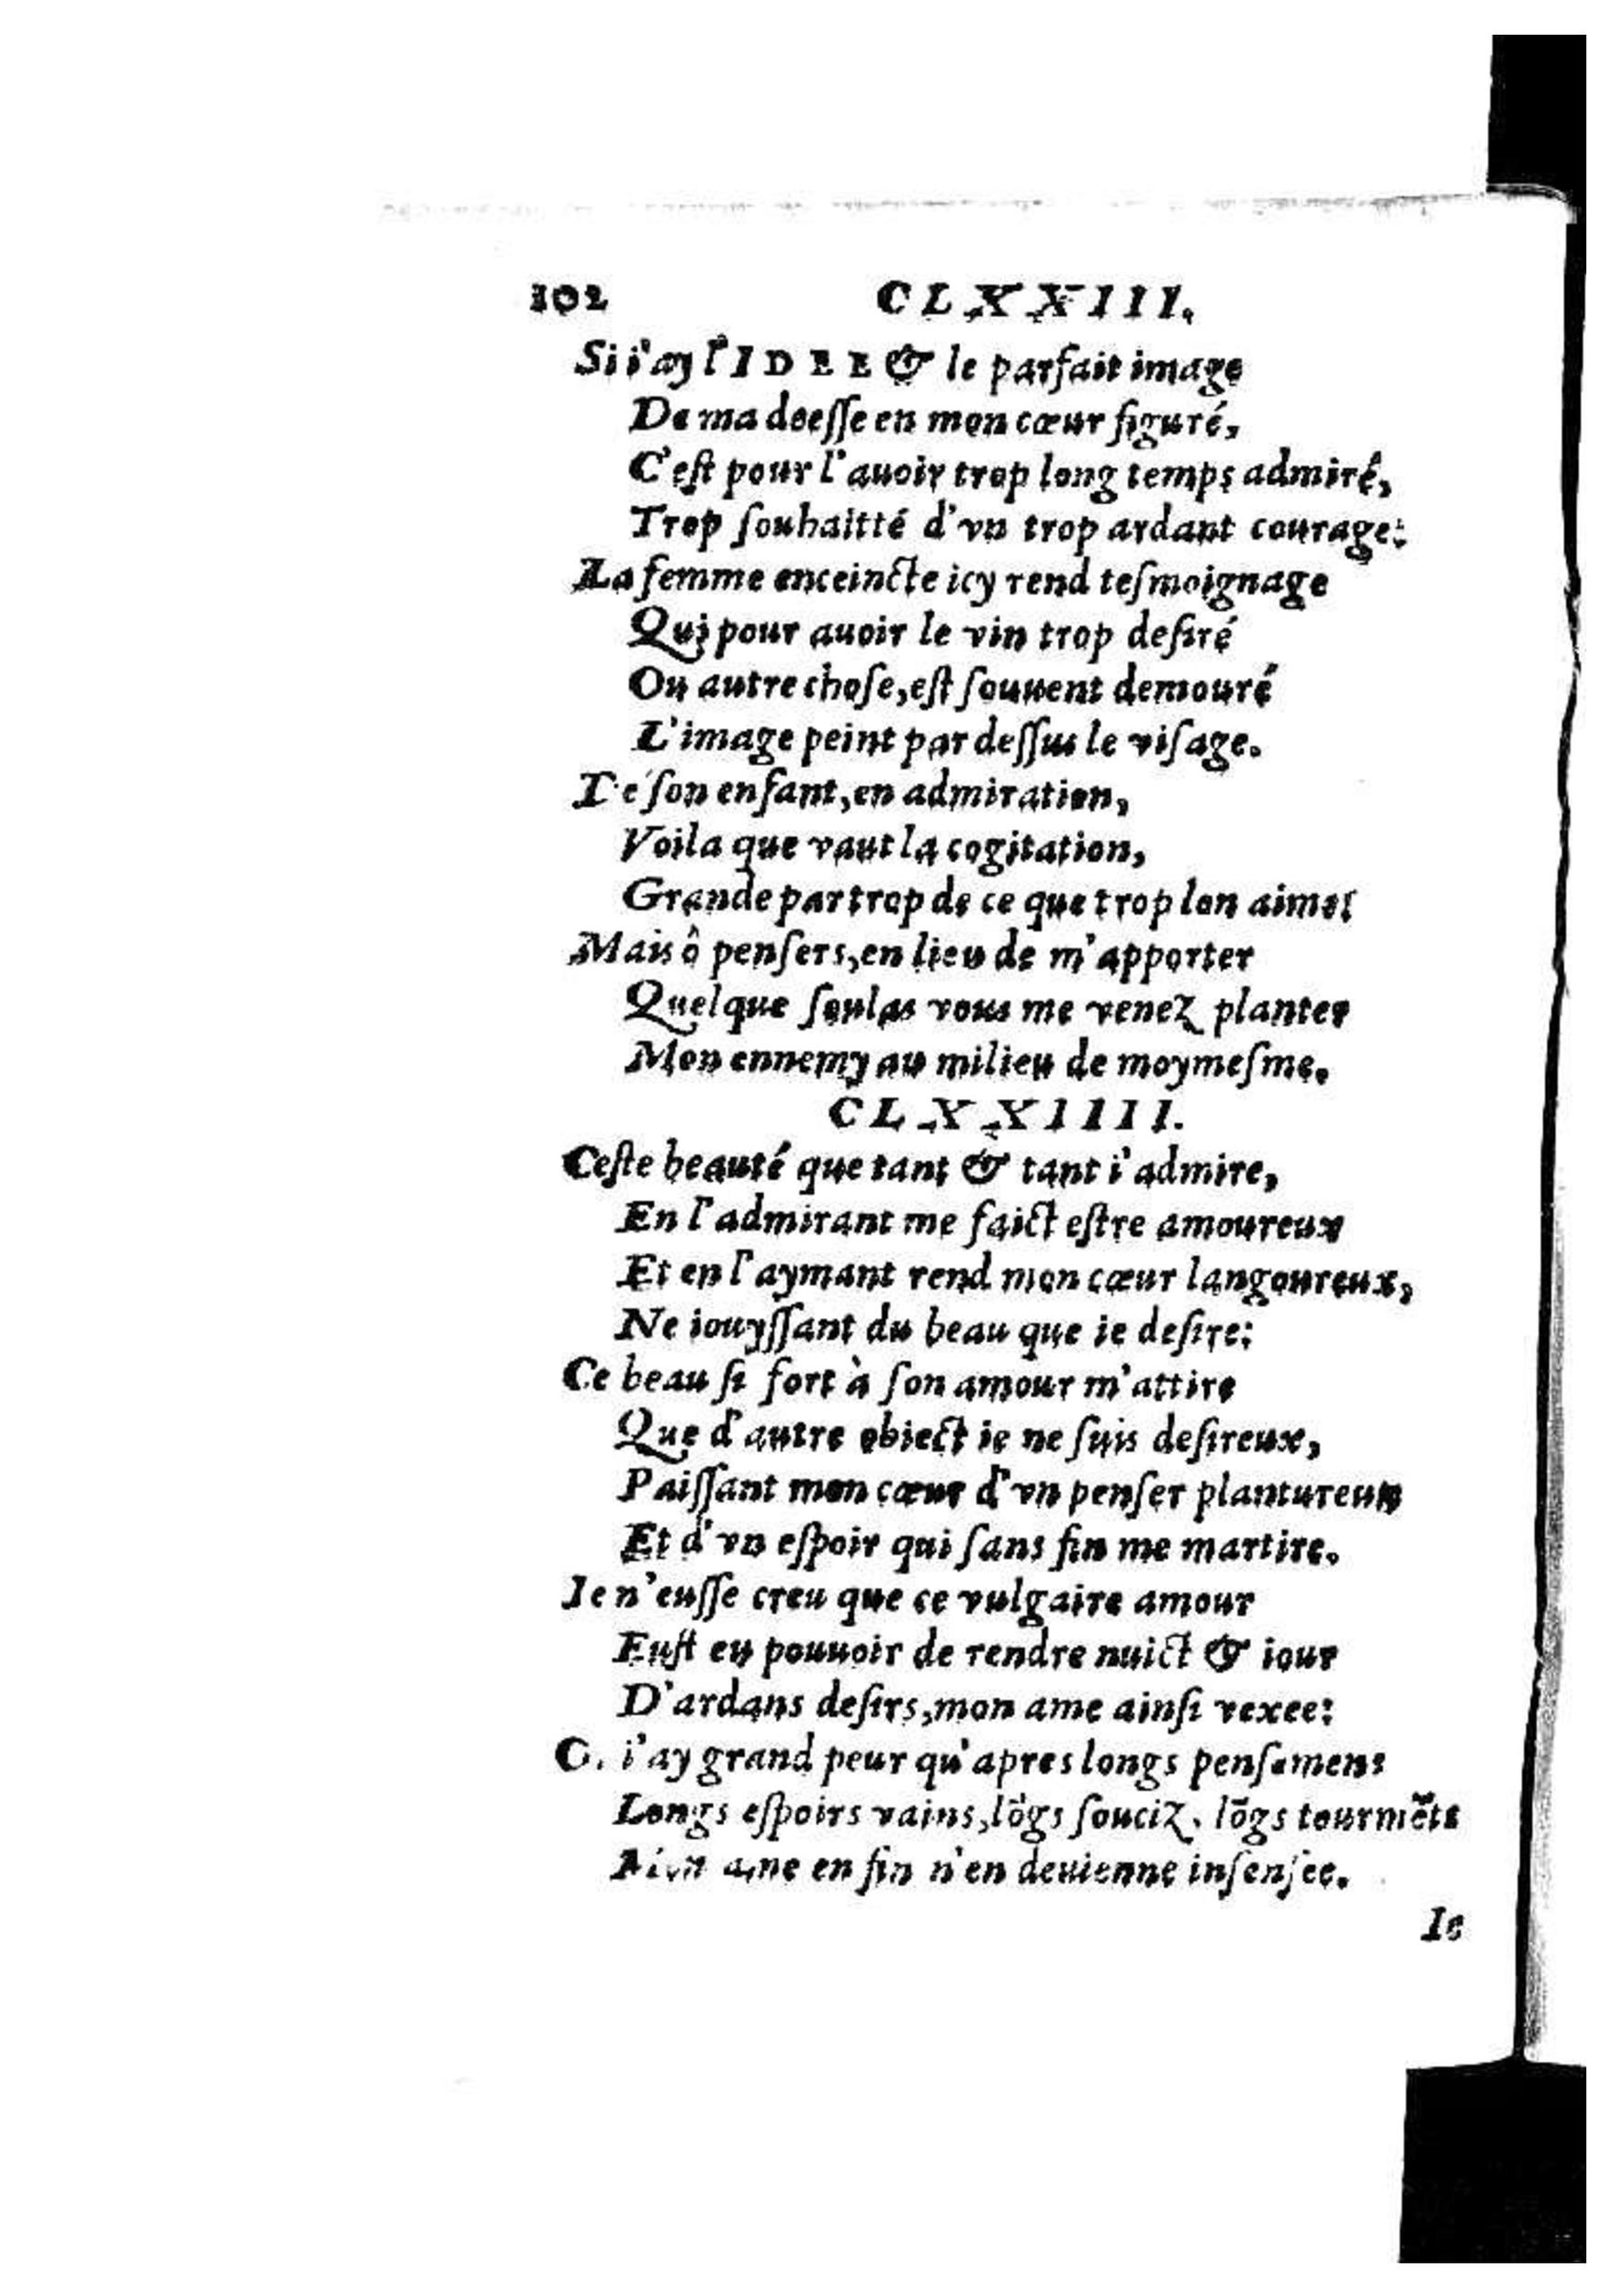 102 CLXXIII.
Si i'ay l'IDEE & le parfait image
De ma deesse en mon cœur figuré,
C'est pour l'auoir trop long temps admiré,
Trop souhaitté d'vn trop ardant courage:
La femme enceincte icy rend tesmoignage
Qui pour auoir le vin trop desiré
Ou autre chose, est souuent demouré
L'image peint par dessus le visage.
De son enfant, en admiration,
Voila que vaut la cogitation,
Grande par trop de ce que trop lon aime!
Mais ô pensers, en lieu de m'apporter
Quelque soulas vous me venez planter
Mon ennemy au milieu de moymesme.
CLXXIIII.
Ceste beauté que tant & tant i'admire,
En l'admirant me faict estre amoureux
Et en l'aymant rend mon cœur langoureux,
Ne iouyssant du beau que ie desire:
Ce beau si fort à son amour m'attire
Que d'autre obiect ie ne suis desireux,
Paissant mon cœur d'vn penser plantureux
Et d'vn espoir qui sans fin me martire.
Ie n'eusse creu que ce vulgaire amour
Eust eu pouuoir de rendre nuict & iour
D'ardans desirs, mon ame ainsi vexee:
O. i'ay grand peur qu'apres longs pensemens
Longs espoirs vains, lõgs souciz, lõgs tourmẽts
Mon ame en fin n'en deuienne insensee.
Ie